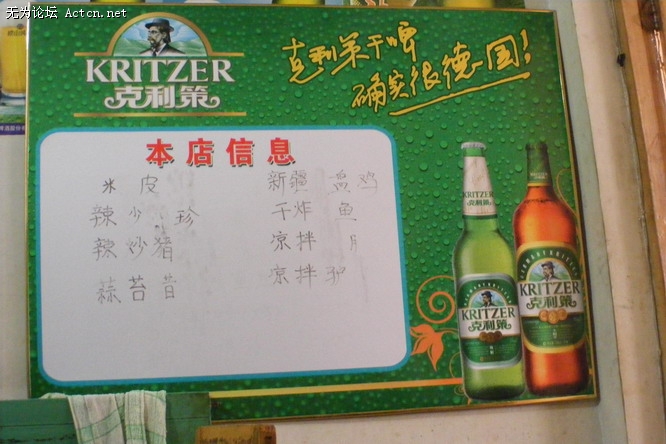 无为论坛 Actcn.net
KRITZER
克利策
克利策干啤
确实很德国!
本店信息
米 皮
辣 珍
辣 猪
蒜苔
新疆 鸡
干炸 鱼
凉拌
凉拌
KRITZER
克利策
KRITZER
克利策